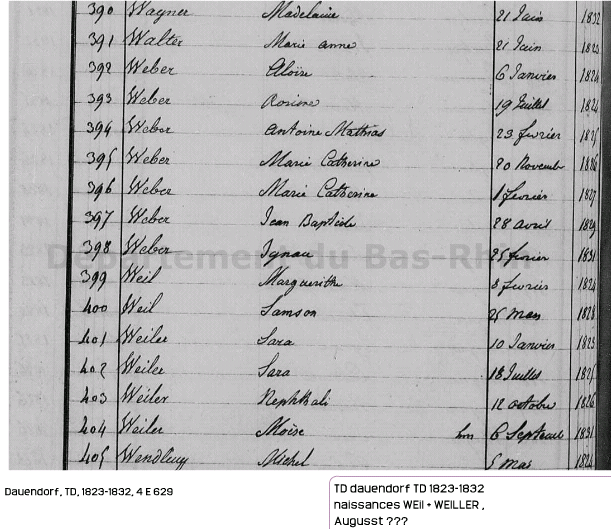 390 Wagner Madelaine 21 Juin 1832
391 Walter Marie anne 21 Juin 1823
392 Weber Aloïse 6 Janvier 1824
393 Weber Rosine 19 Juillet 1824
394 Weber Antoine Mathias 23 fevrier 1825
395 Weber Marie Catherine 20 Novemb 1826
396 Weber Marie Catherine 1 fevrier 1827
397 Weber Jean Baptiste 28 avril 1829
398 Weber Ignace 25 fevrier 1831
399 Weil Marguerithe 8 fevrier 1824
400 Weil Samson 25 Mars 1828
401 Weiler Sara 10 Janvier 1823
402 Weiler Sara 18 Juillet 1825
403 Weiler Nephtali 12 octobre 1826
404 Weiler Moïse 6 Septemb 1831
405 Wendling Michel 5 Mai
Département du Bas-Rhin
Dauendorf, TD, 1823-1832, 4 E 629
TD dauendorf TD 1823-1832
naissances WEil + WEILLER ,
Augusst ???